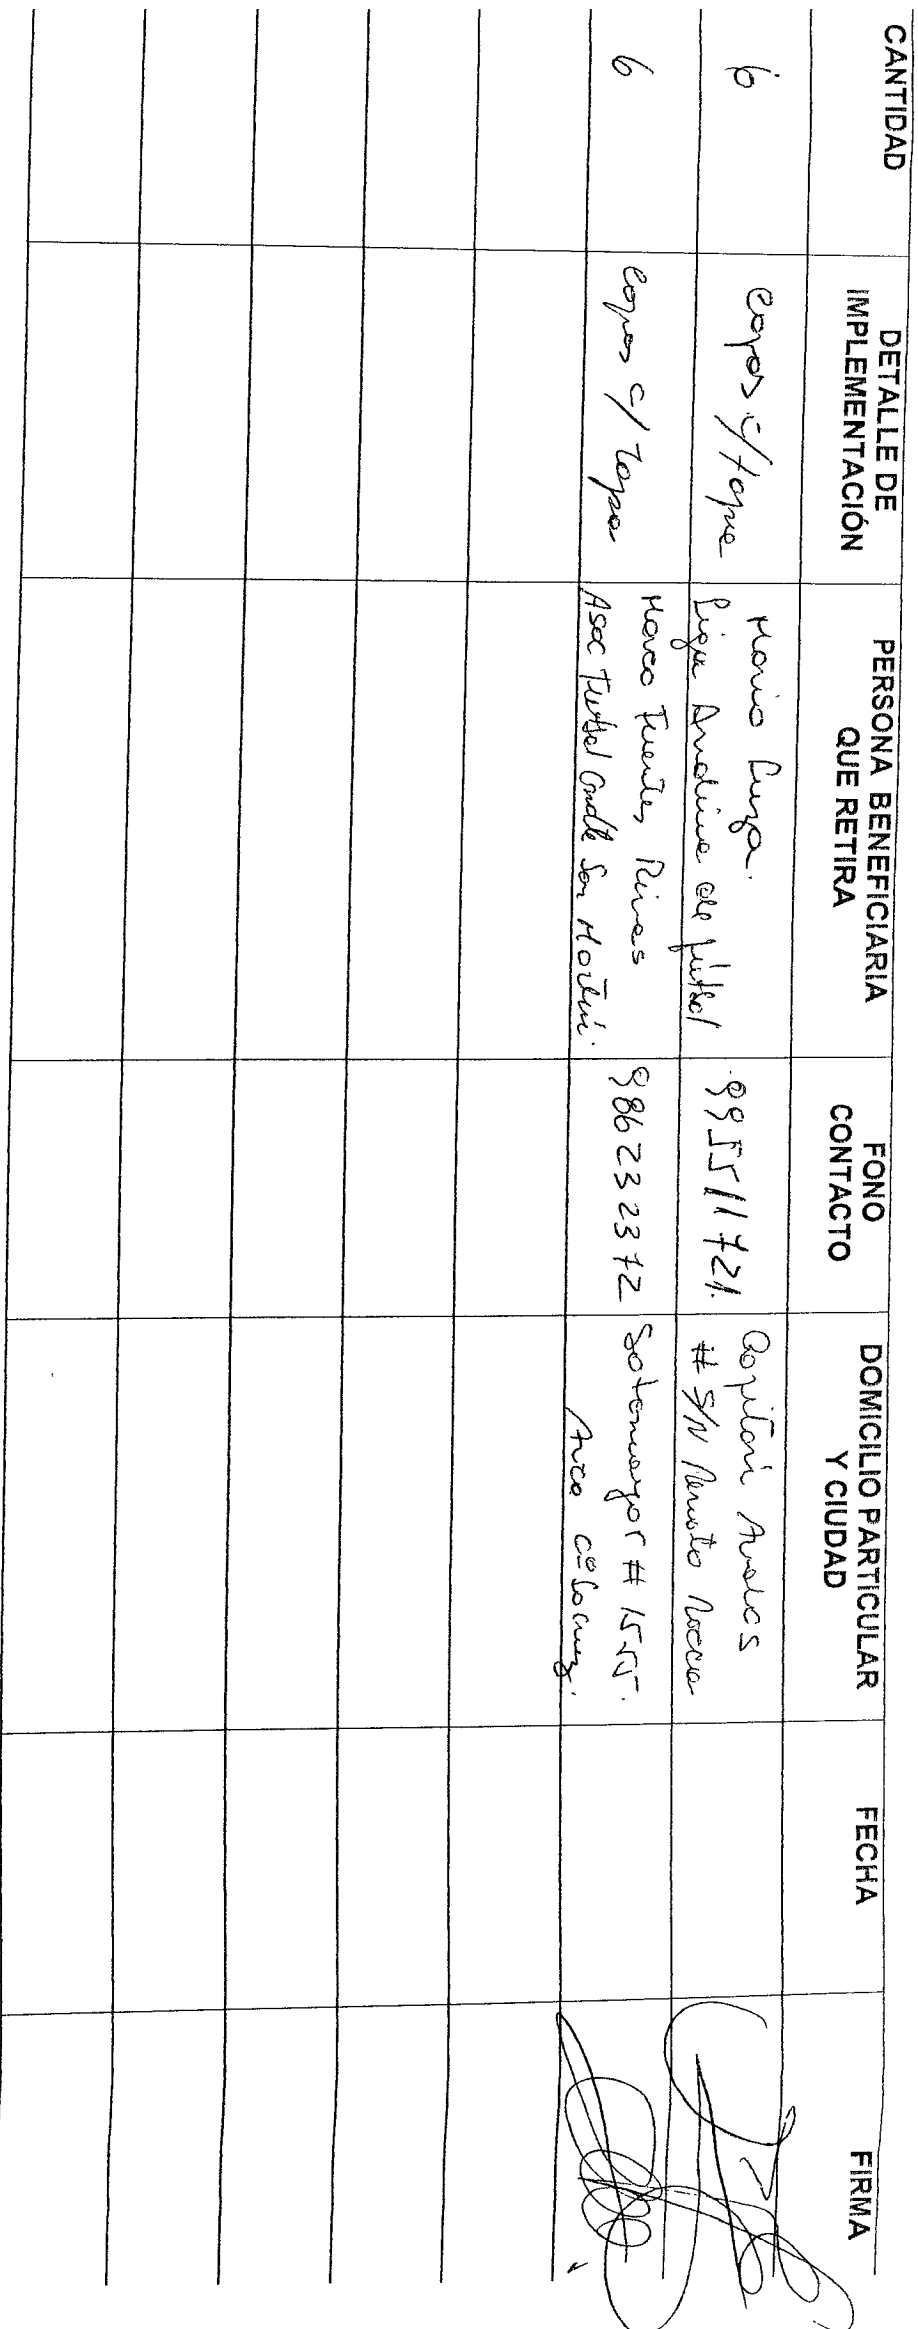 CANTIDAD
DETALLE DE
IMPLEMENTACIÓN
PERSONA BENEFICIARIA
QUE RETIRA
FONO
CONTACTO
DOMICILIO PARTICULAR
Y CIUDAD
FECHA
FIRMA
6
Copas c/tapa
Mario Luza.
Liga Andina de fútbol
995511721.
Capitán Avalos
# S/N Renato Rocca
6
Copas c/ Tapa
Marco Fuentes Rivas
Asoc Futbol San Martín.
986232372
Sotomayor # 1555.
Arica